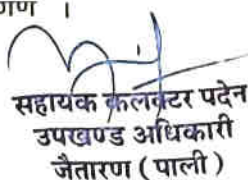 गण ।
सहायक कलक्टर पदेन
उपखण्ड अधिकारी
जैतारण ( पाली )